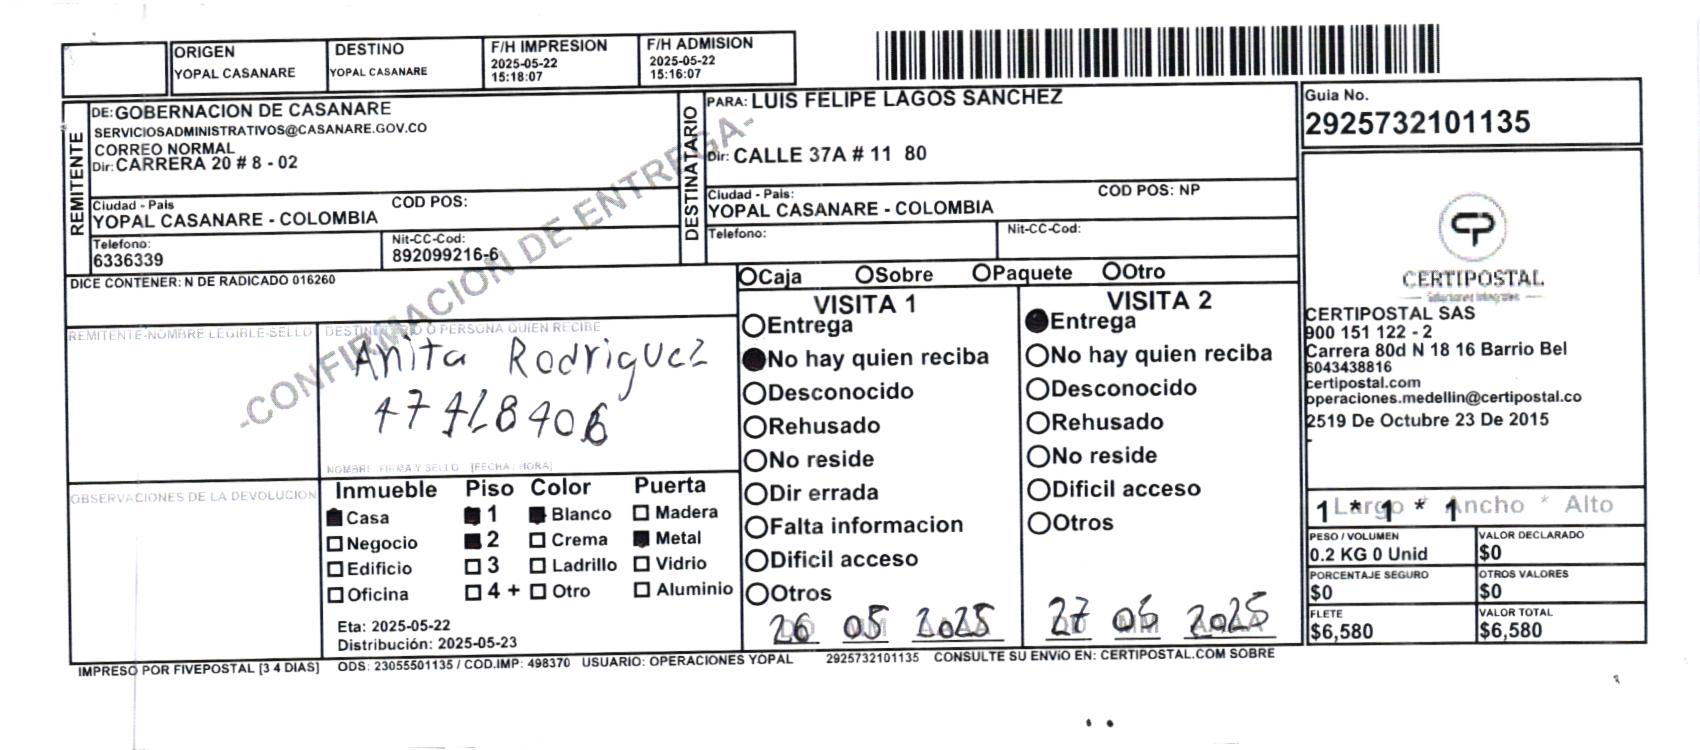 ORIGEN
YOPAL CASANARE
DESTINO
YOPAL CASANARE
F/H IMPRESION
2025-05-22
15:18:07
F/H ADMISION
2025-05-22
15:16:07
REMITENTE
DE: GOBERNACION DE CASANARE
SERVICIOSADMINISTRATIVOS@CASANARE.GOV.CO
CORREO NORMAL
Dir: CARRERA 20 # 8 - 02
Ciudad - Pais
COD POS:
YOPAL CASANARE - COLOMBIA
Telefono:
6336339
Nit-CC-Cod:
892099216-6
DESTINATARIO
PARA: LUIS FELIPE LAGOS SANCHEZ
Dir: CALLE 37A # 11 80
Ciudad - Pais:
COD POS: NP
YOPAL CASANARE - COLOMBIA
Telefono:
Nit-CC-Cod:
Guia No.
2925732101135
CERTIPOSTAL
Soluciones Integrales
CERTIPOSTAL SAS
900 151 122 - 2
Carrera 80d N 18 16 Barrio Bel
6043438816
certipostal.com
operaciones.medellin@certipostal.co
2519 De Octubre 23 De 2015
-
-CONFIRMACION DE ENTREGA-
DICE CONTENER: N DE RADICADO 016260
REMITENTE-NOMBRE LEGIBLE-SELLO
DESTINATARIO O PERSONA QUIEN RECIBE
Anita Rodriguez
NOMBRE FIRMA Y SELLO [FECHA / HORA]
OBSERVACIONES DE LA DEVOLUCION
Inmueble Piso Color Puerta
Casa 1 Blanco Madera
Negocio 2 Crema Metal
Edificio 3 Ladrillo Vidrio
Oficina 4 + Otro Aluminio
Eta: 2025-05-22
Distribución: 2025-05-23
Caja Sobre Paquete Otro
VISITA 1
Entrega
No hay quien reciba
Desconocido
Rehusado
No reside
Dir errada
Falta informacion
Dificil acceso
Otros
26 05 2025
VISITA 2
Entrega
No hay quien reciba
Desconocido
Rehusado
No reside
Dificil acceso
Otros
27 05 2025
1 * 1 * 1
Largo * Ancho * Alto
PESO / VOLUMEN
0.2 KG 0 Unid
VALOR DECLARADO
$0
PORCENTAJE SEGURO
$0
OTROS VALORES
$0
FLETE
$6,580
VALOR TOTAL
$6,580
IMPRESO POR FIVEPOSTAL [3 4 DIAS] ODS: 23055501135 / COD.IMP: 498370 USUARIO: OPERACIONES YOPAL 2925732101135 CONSULTE SU ENVíO EN: CERTIPOSTAL.COM SOBRE